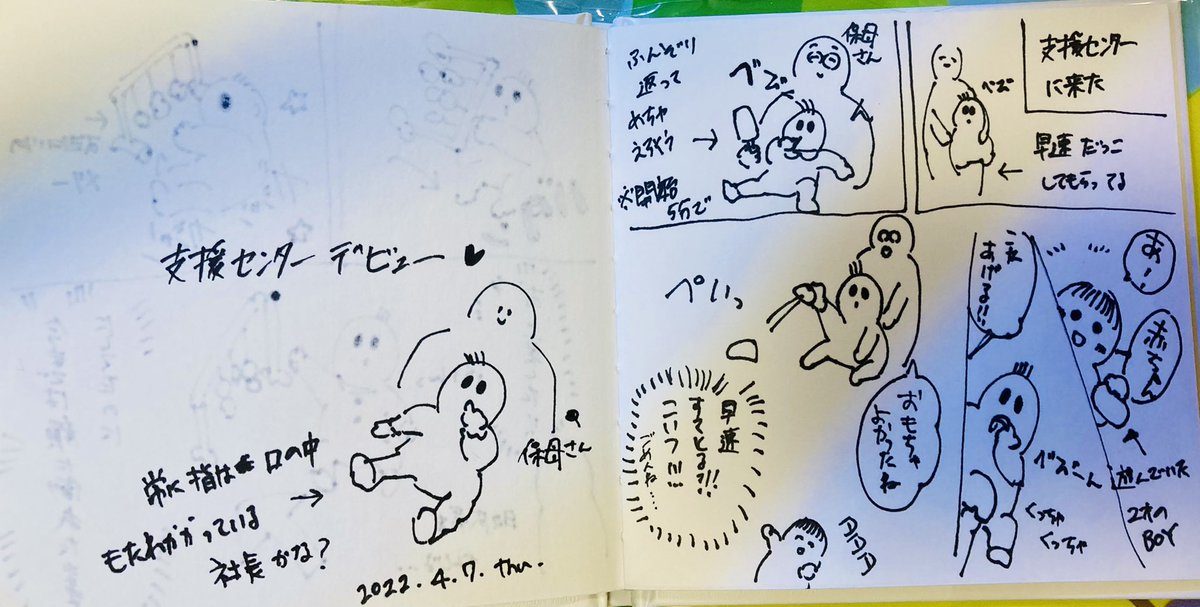 支援センター
に来た
ベズ
早速だっこ
してもらってる
保母
さん
ベズ
ふんぞり
返って
めちゃ
えらそう
※開始
5分で
あ!
赤ちゃん
遊んでいた
2才の
BOY
これ
あげる!!
ベズーん
くっちゃ
くっちゃ
おもちゃ
よかったね
ぺいっ
早速
すてとる?!!
こいつ!!!
ごめんね…
支援センター デビュー♥
保母さん
常に指は口の中
もたれかかっている
社長かな?
2022.4.7.thu.